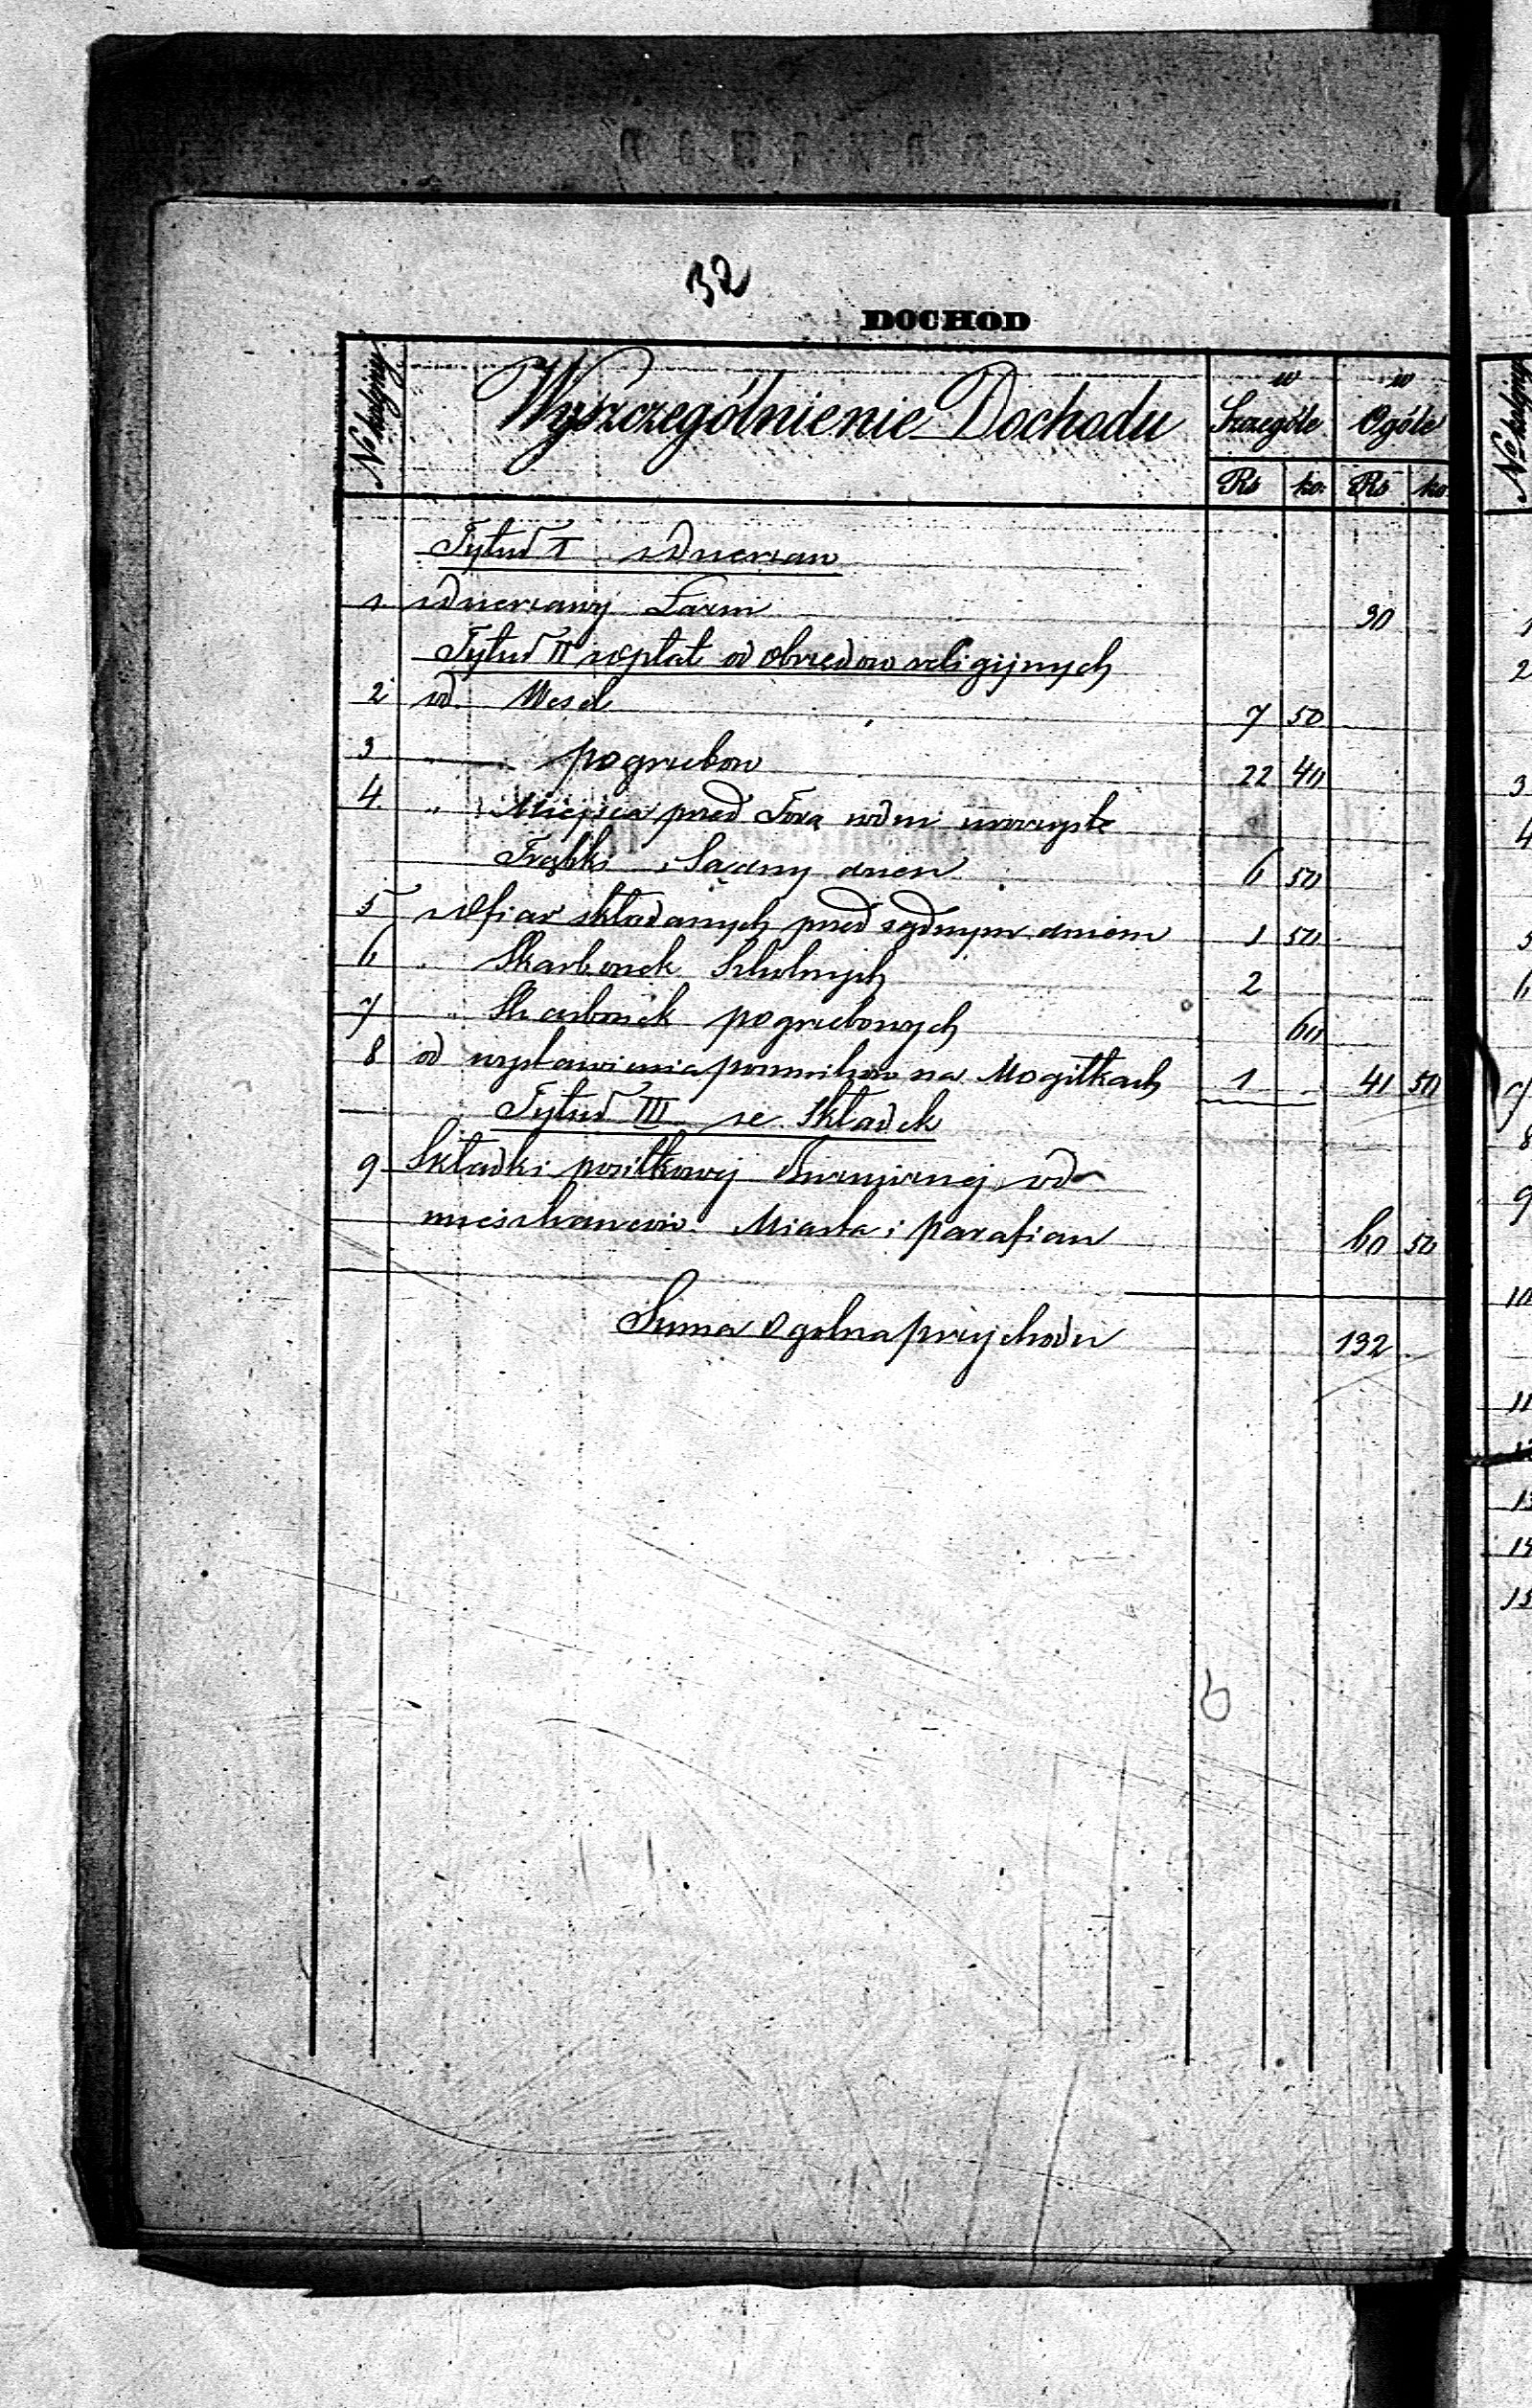 32
DOCHÓD
№ kolejny Wyszczególnienie Dochodu w Szczególe w Ogóle
Rs ko. Rs ko.
Tytuł I z Dzierzaw
1. z Dzierzawy Łazni 30
Tytuł II z opłat od obrzedow religijnych
2 od Wesel 7 50
3 " pogrzebow 22 40
4 " Miejsca przed Torą w dni uroczyste
Trąbki i Sądny dzien 6 50
5 z Ofiar składanych przed sądnym dniem 1 50
6 " Skarbonek Szkolnych 2
7 " Skarbonek pogrzebowych 60
8 od wystawienia pomnikow na Mogiłkach 1 41 50
Tytuł III ze Składek
9 Składki posiłkowej od
mieszkancow Miasta i parafian 60 50
Suma Ogolna przychodu 132